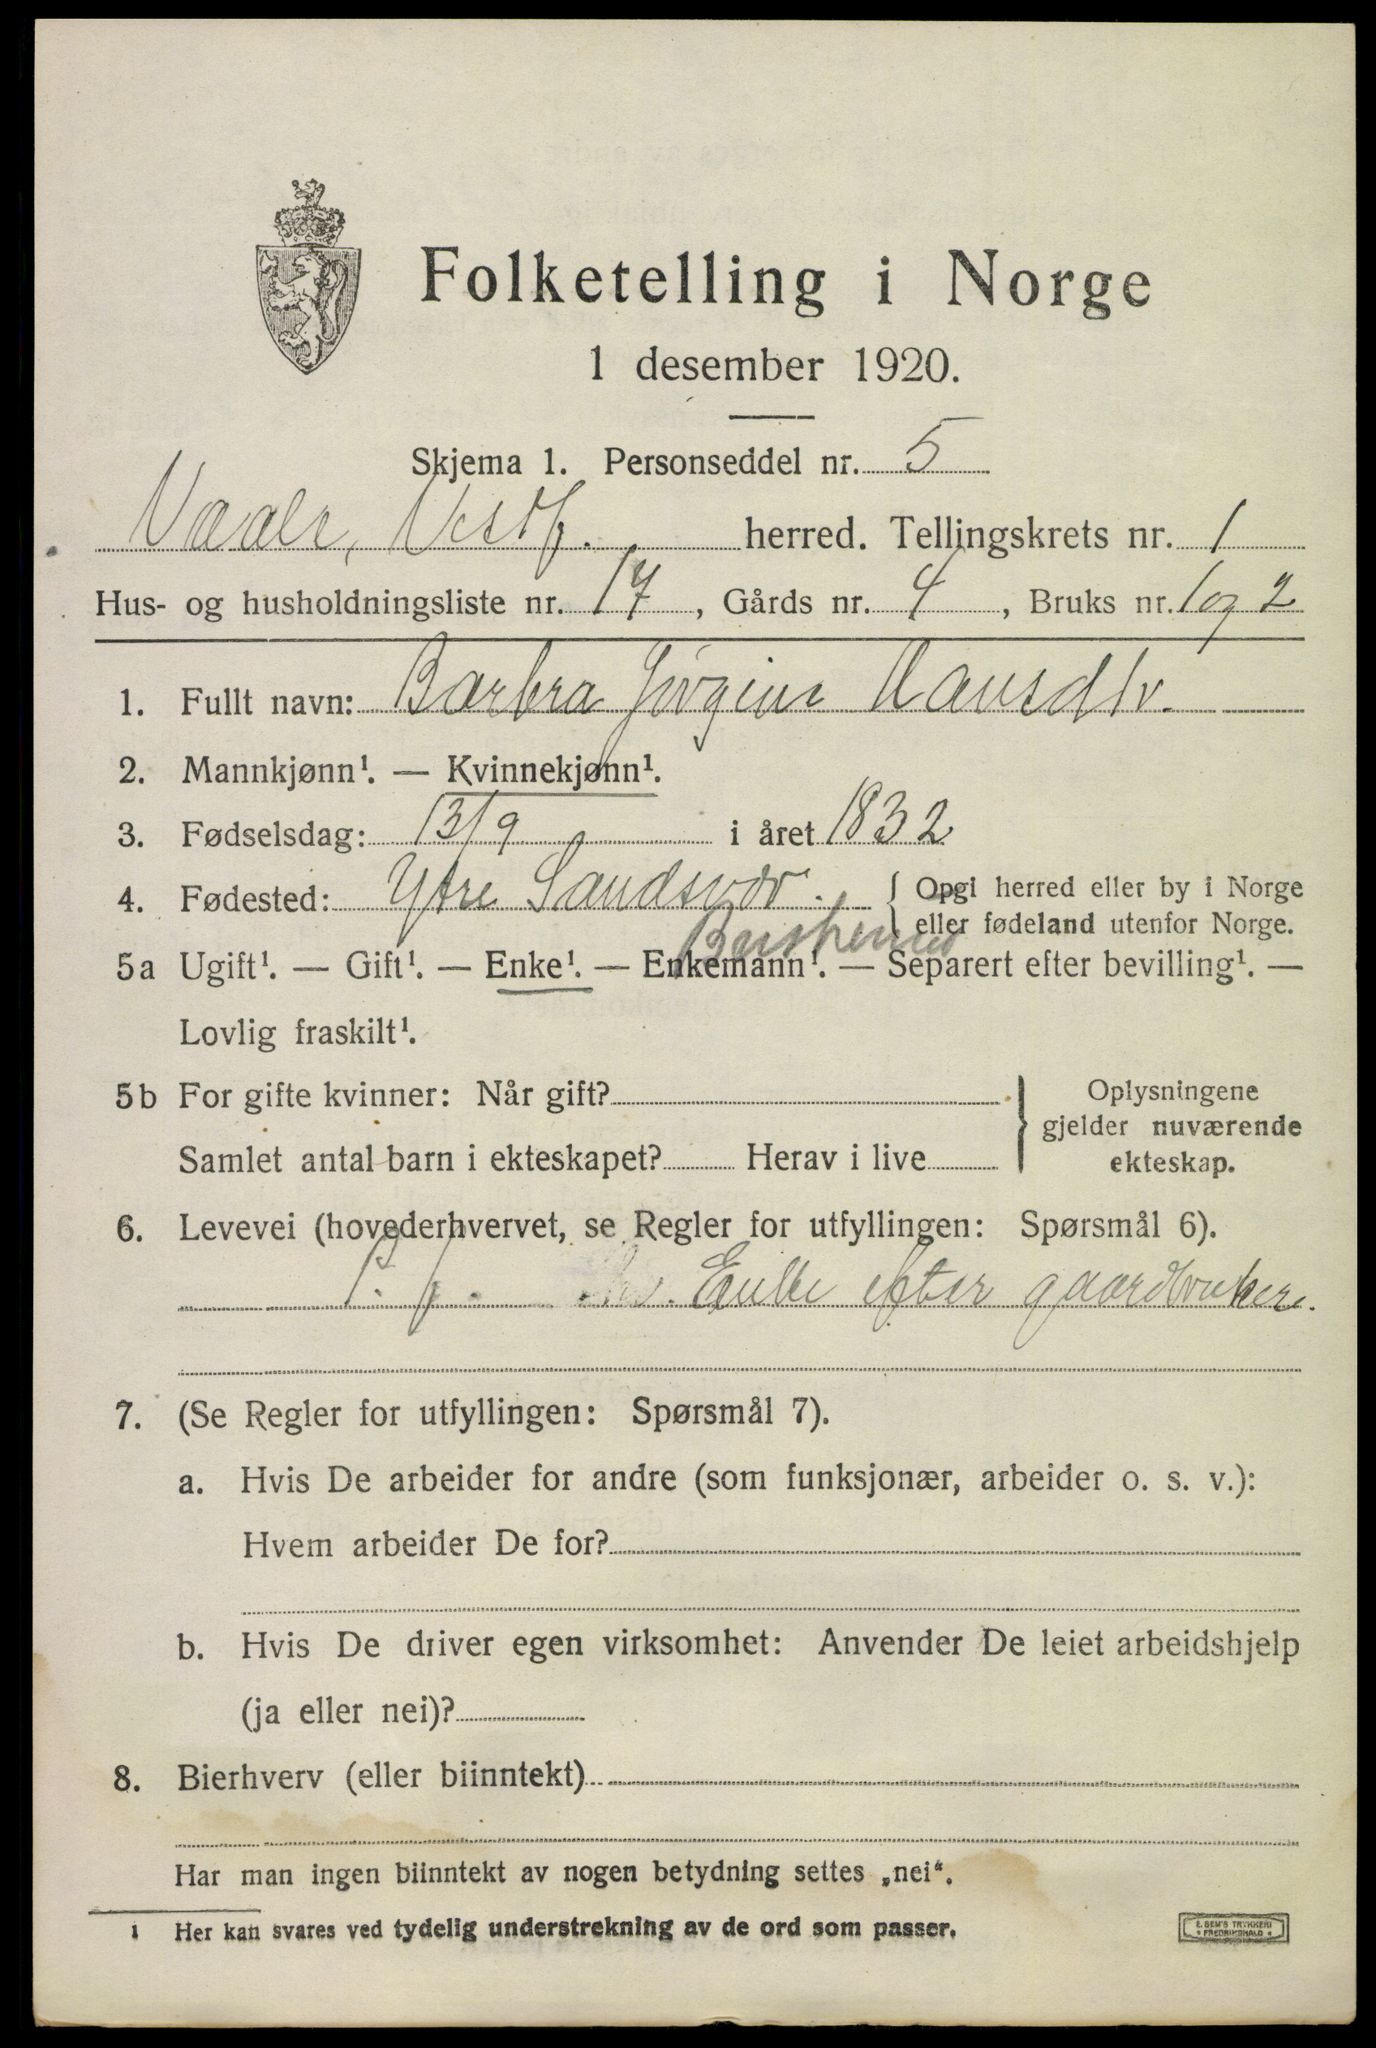 Folketelling i Norge
1 desember 1920.
Skjema 1. Personseddel nr. 5
Vaale, Vestf. herred. Tellingskrets nr. 1
Hus- og husholdningsliste nr. 17, Gårds nr. 4, Bruks nr. 1 og 2
1. Fullt navn: Barbra Jørgine Hansdtr.
2. Mannkjønn¹. — Kvinnekjønn¹.
3. Fødselsdag: 13/9 i året 1832
4. Fødested: Ytre Sandsvær. { Opgi herred eller by i Norge
eller fødeland utenfor Norge.
Buskerud
5a Ugift¹. — Gift¹. — Enke¹. — Enkemann¹. — Separert efter bevilling¹. —
Lovlig fraskilt¹.
5b For gifte kvinner: Når gift? Oplysningene
gjelder nuværende
Samlet antal barn i ekteskapet? Herav i live ekteskap.
6. Levevei (hovederhvervet, se Regler for utfyllingen: Spørsmål 6).
Enke efter gaardbruker.
7. (Se Regler for utfyllingen: Spørsmål 7).
a. Hvis De arbeider for andre (som funksjonær, arbeider o. s. v.):
Hvem arbeider De for?
b. Hvis De driver egen virksomhet: Anvender De leiet arbeidshjelp
(ja eller nei)?
8. Bierhverv (eller biinntekt)
Har man ingen biinntekt av nogen betydning settes „nei“.
1 Her kan svares ved tydelig understrekning av de ord som passer.
E. SEM'S TRYKKERI
FREDRIKSHALD